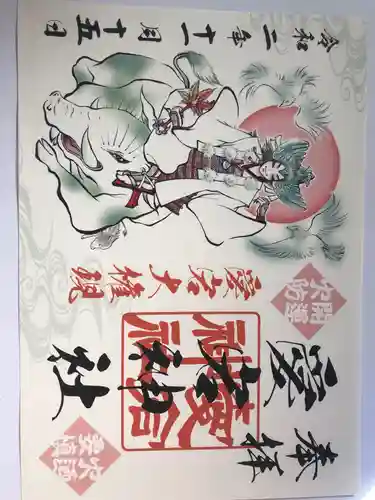 奉拝
愛宕神社
愛宕神社
開運
火防
火迺
要慎
愛宕大権現
令和二年十一月十五日